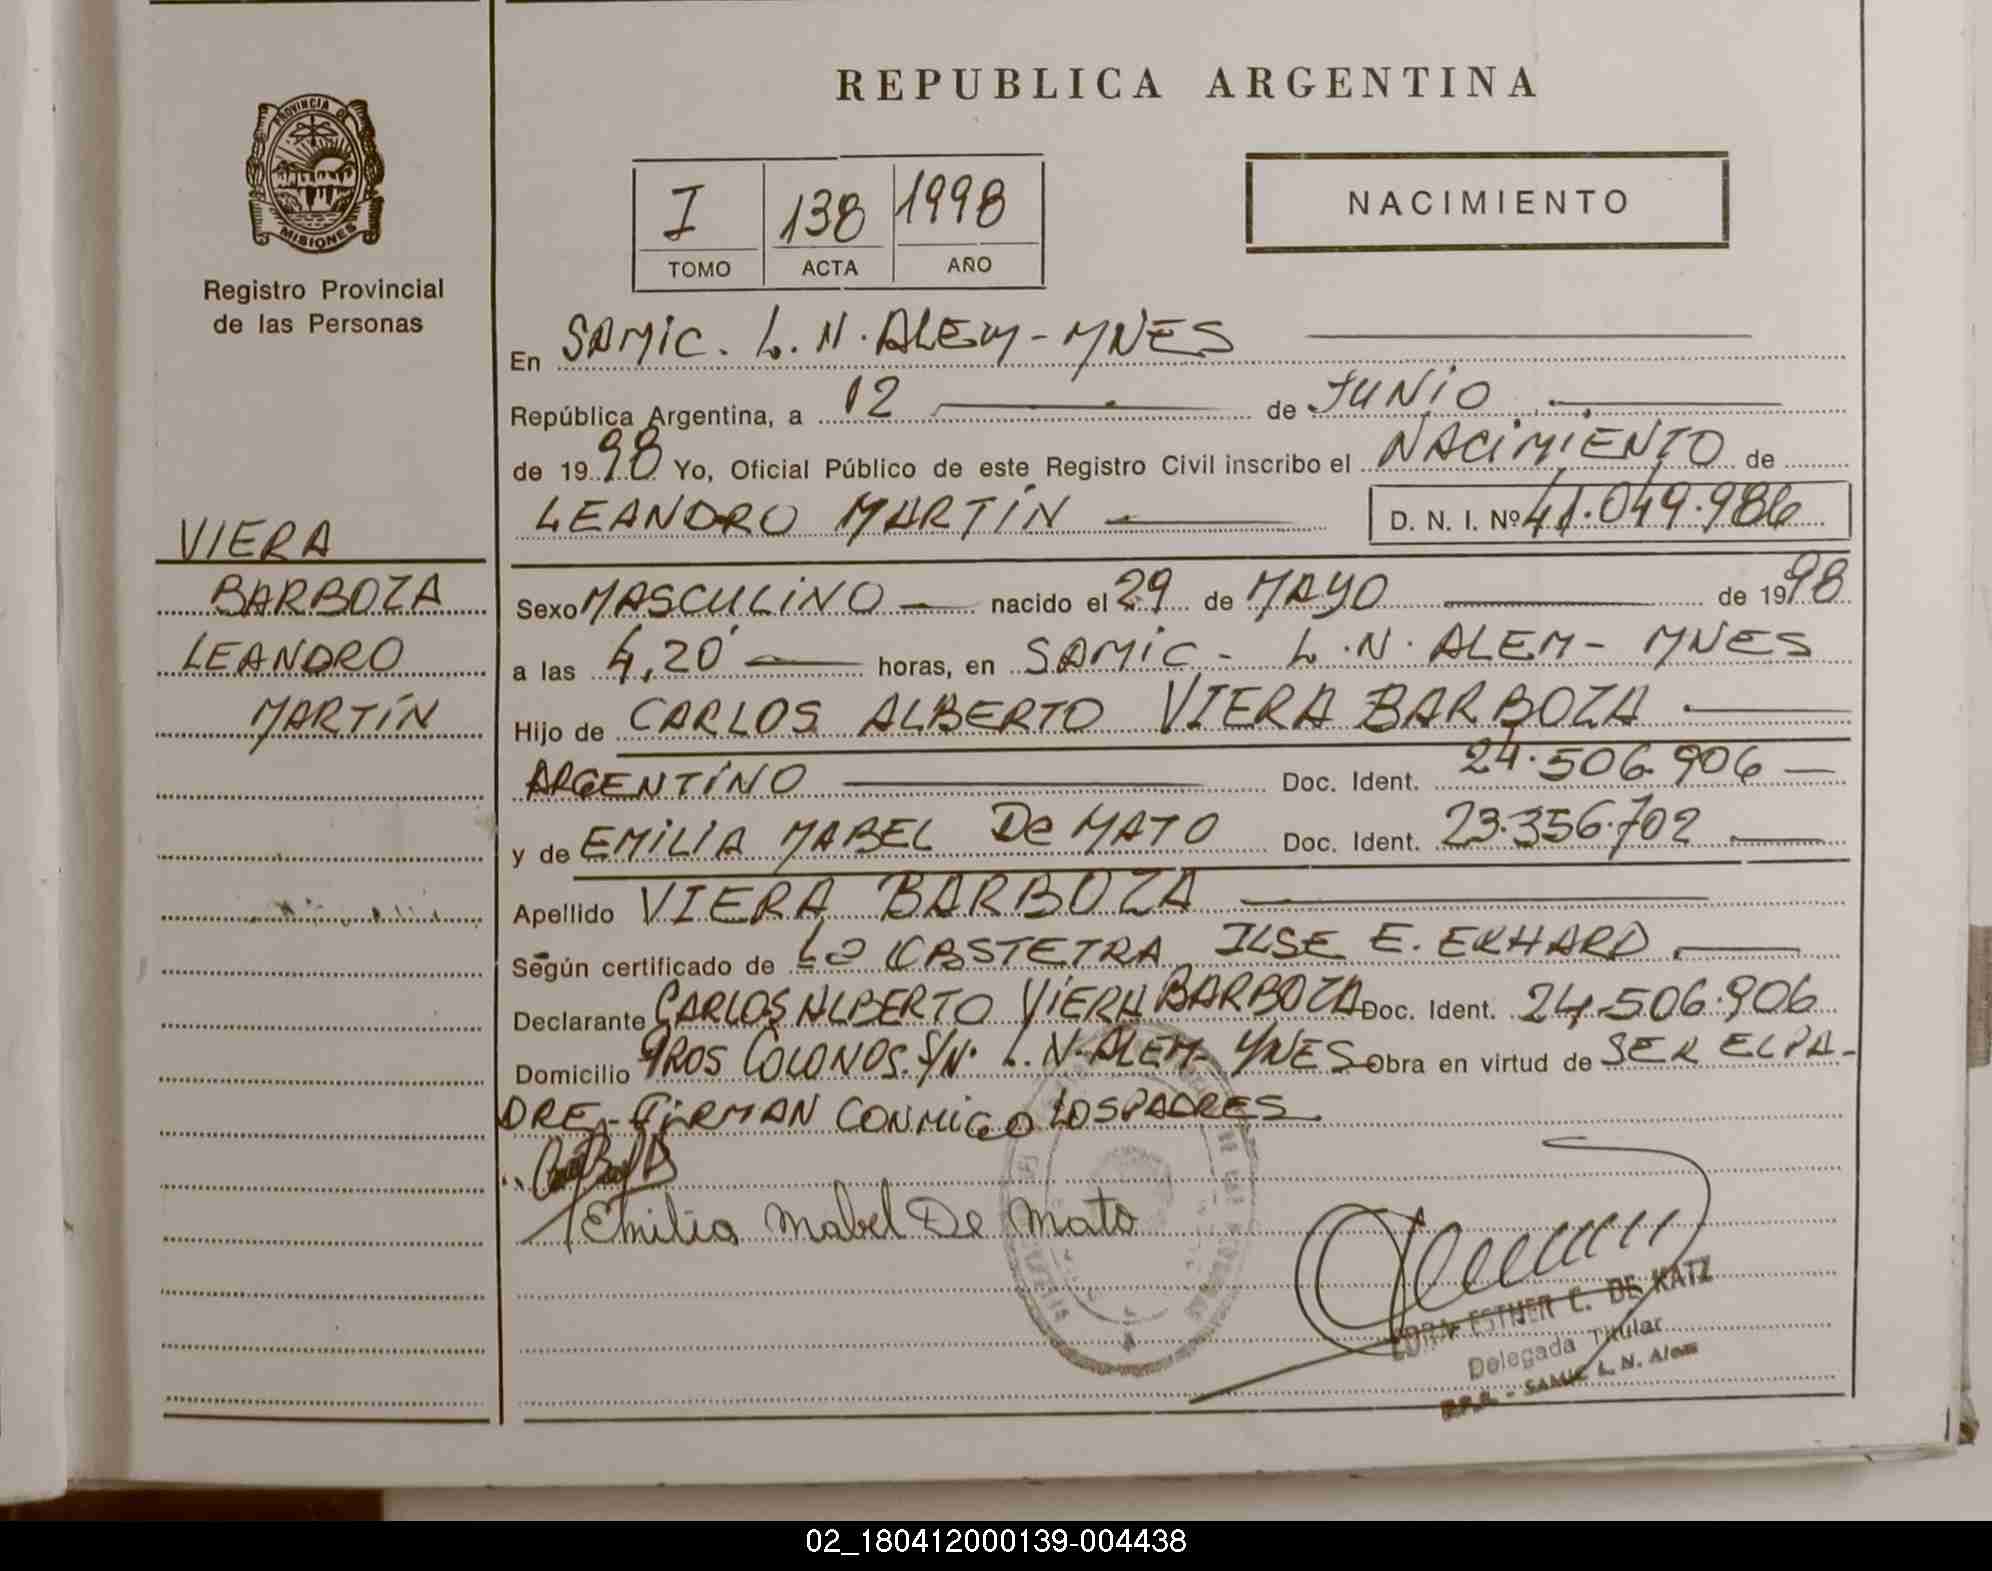 REPUBLICA ARGENTINA
PROVINCIA DE
MISIONES
Registro Provincial
de las Personas
I 138 1998
TOMO ACTA AÑO
NACIMIENTO
En SAMIC. L. N. ALEM - MNES
República Argentina, a 12 de JUNIO
de 1998 Yo, Oficial Público de este Registro Civil inscribo el NACIMIENTO de
LEANDRO MARTÍN D. N. I. Nº 41.049.986
VIERA
BARBOZA
LEANDRO
MARTÍN
Sexo MASCULINO nacido el 29 de MAYO de 1998
a las 4,20 horas, en SAMIC - L. N. ALEM - MNES
Hijo de CARLOS ALBERTO VIERA BARBOZA
ARGENTINO Doc. Ident. 24.506.906
y de EMILIA MABEL De MATO Doc. Ident. 23.356.702
Apellido VIERA BARBOZA
Según certificado de La OBSTETRA ILSE E. EKHARD
Declarante CARLOS ALBERTO VIERA BARBOZA Doc. Ident. 24.506.906
Domicilio PROS COLONOS. S/N. L. N. ALEM - MNES Obra en virtud de SER EL PA-
DRE - FIRMAN CONMIGO LOS PADRES.
Emilia Mabel De Mato
ESTHER C. DE KATZ
Delegada Titular
R.P.P. - SAMIC L. N. Alem
02_180412000139-004438